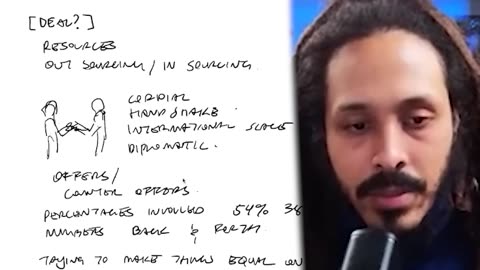 [DEAL?]
RESOURCES
OUT SOURCING / IN SOURCING.
CORDIAL
HANDSHAKE
INTERNATIONAL SCALE
DIPLOMATIC.
OFFERS/
COUNTER OFFERS.
PERCENTAGES INVOLVED 54% 38
NUMBERS BACK & FORTH.
TRYING TO MAKE THINGS EQUAL ON